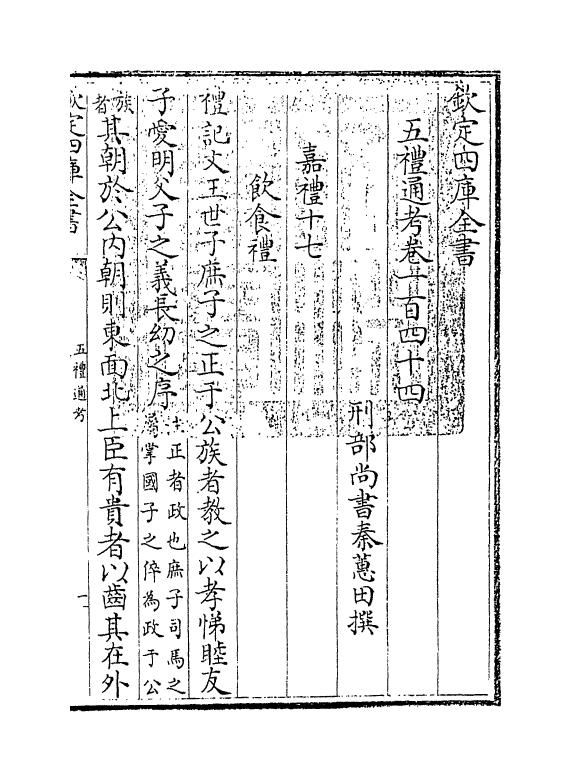 欽定四庫全書
五禮通考卷一百四十四
刑部尚書秦蕙田撰
嘉禮十七
飲食禮
禮記文王世子庶子之正于公族者教之以孝悌睦友
子愛明父子之義長幼之序
注正者政也庶子司馬之
屬掌國子之倅為政于公
族者
其朝於公内朝則東面北上臣有貴者以齒其在外
欽定四庫全書
五禮通考
一